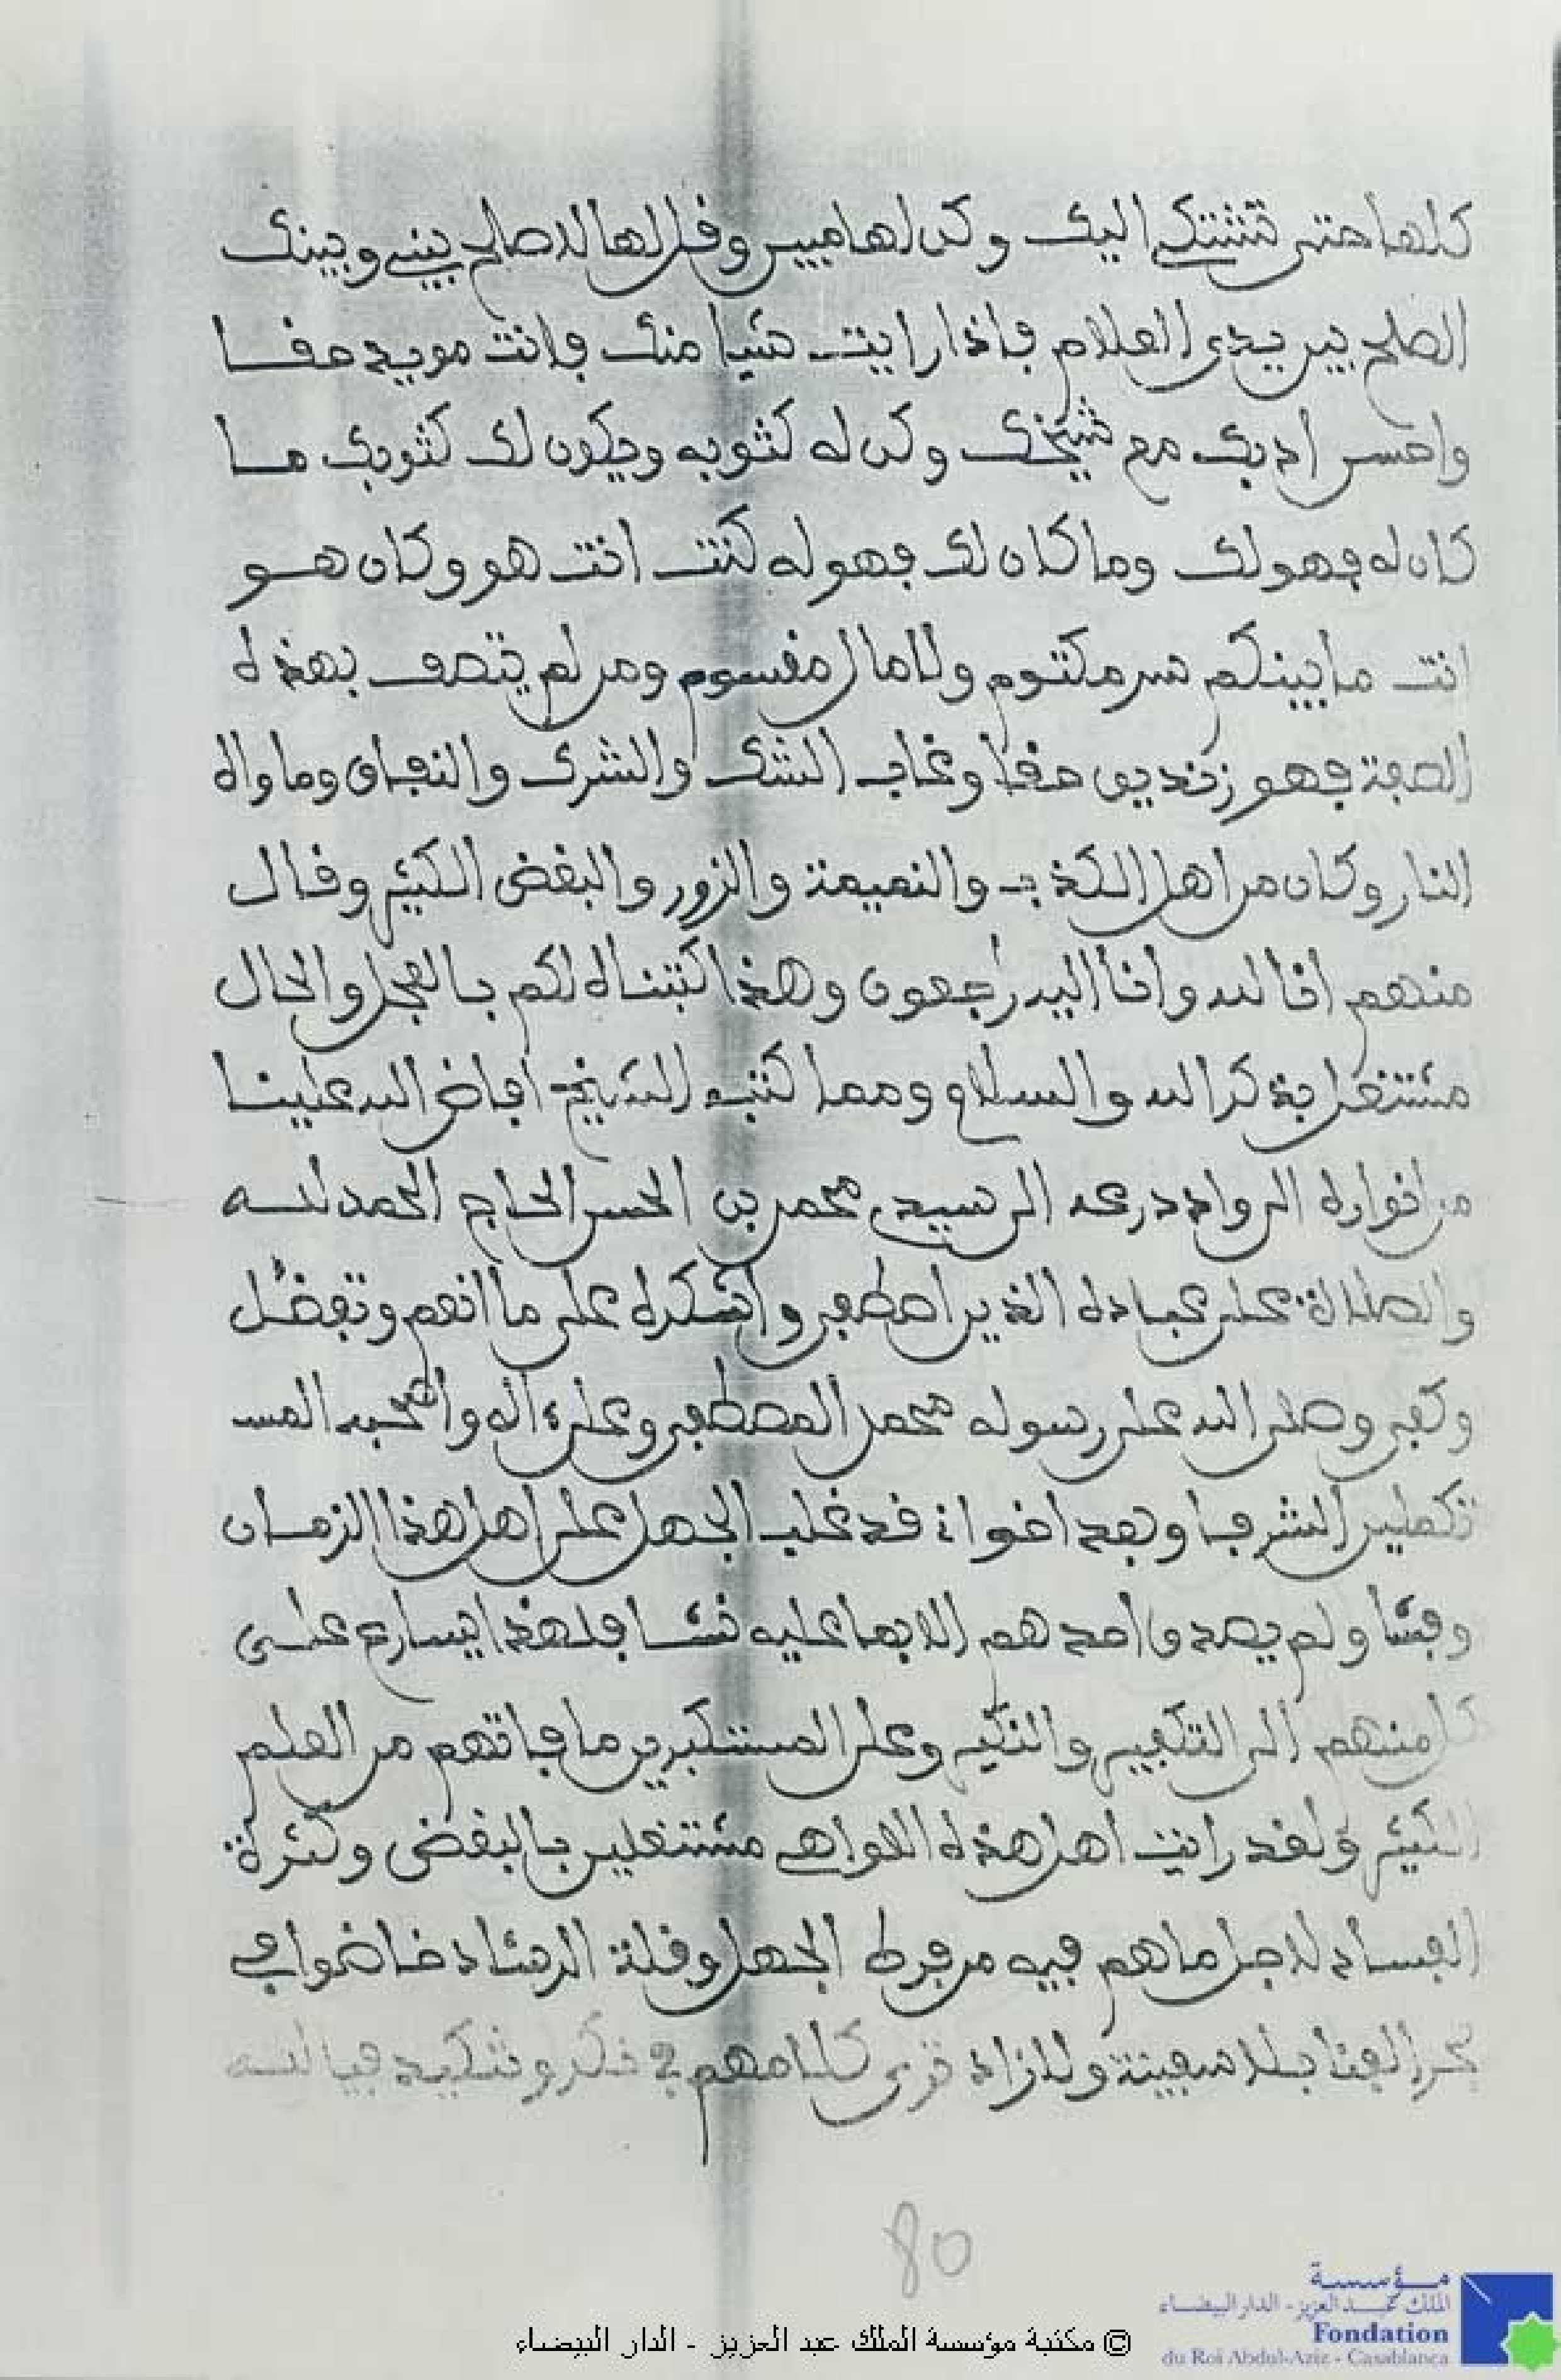 كلها حتى تشتكي اليك وكن لها مييس وقل لها لا صالح بيني وبينك
الصلح بين يدي العلام فإذا رايت شيا منك فانت مويد حقا
واحسن ادبك مع شيخك وكن له كثوبه ويكون لك كثوبك ما
كان له فهو لك وما كان لك فهو له كنت انت هو وكان هو
انت ما بينكم سر مكتوم ولا مال مقسوم ومن لم يتصف بهذه
الصفة فهو زنديق حقا وغاب الشك والشرك والنفاق وماواه
النار وكان من اهل الكذب والنميمة والزور والبغض الكثير وقال
منهم انا لله وانا اليه راجعون وهذا كتبناه لكم بالعجل والحال
مشتغل بذكر الله والسلام ومما كتبه الشيخ افاض الله علينا
من انواره الى واد درعه الى سيدي محمد بن الحسن الحاج الحمد لله
والصلاة على عباده الذين اصطفى واشكره على ما انعم وتفضل
وكفى وصلى الله على رسوله محمد المصطفى وعلى ءاله واصحبه المسـ
تكملين الشرفا وبعد اخواني قد غلب الجهل على اهل هذا الزمان
وفشا ولم يصدق احدهم الا بما عليه نشا فلهذا يسارع على
كل منهم الى التكفير والنكير وعلى المستكبرين ما فاتهم من العلم
الكثير ولقد رايت اهل هذه النواهي مشتغلين بالبغض وكثرة
الفساد لاجل ما هم فيه من فرط الجهل وقلة الرشاد خاضوا في
بحر الفنا بلا سفينة ولا زاد ترى كلامهم في نكد وتنكيد فيا لله
80
مؤسسة
الملك عبد العزيز - الدار البيضاء
Fondation
du Roi Abdul-Aziz - Casablanca
© مكتبة مؤسسة الملك عبد العزيز - الدار البيضاء